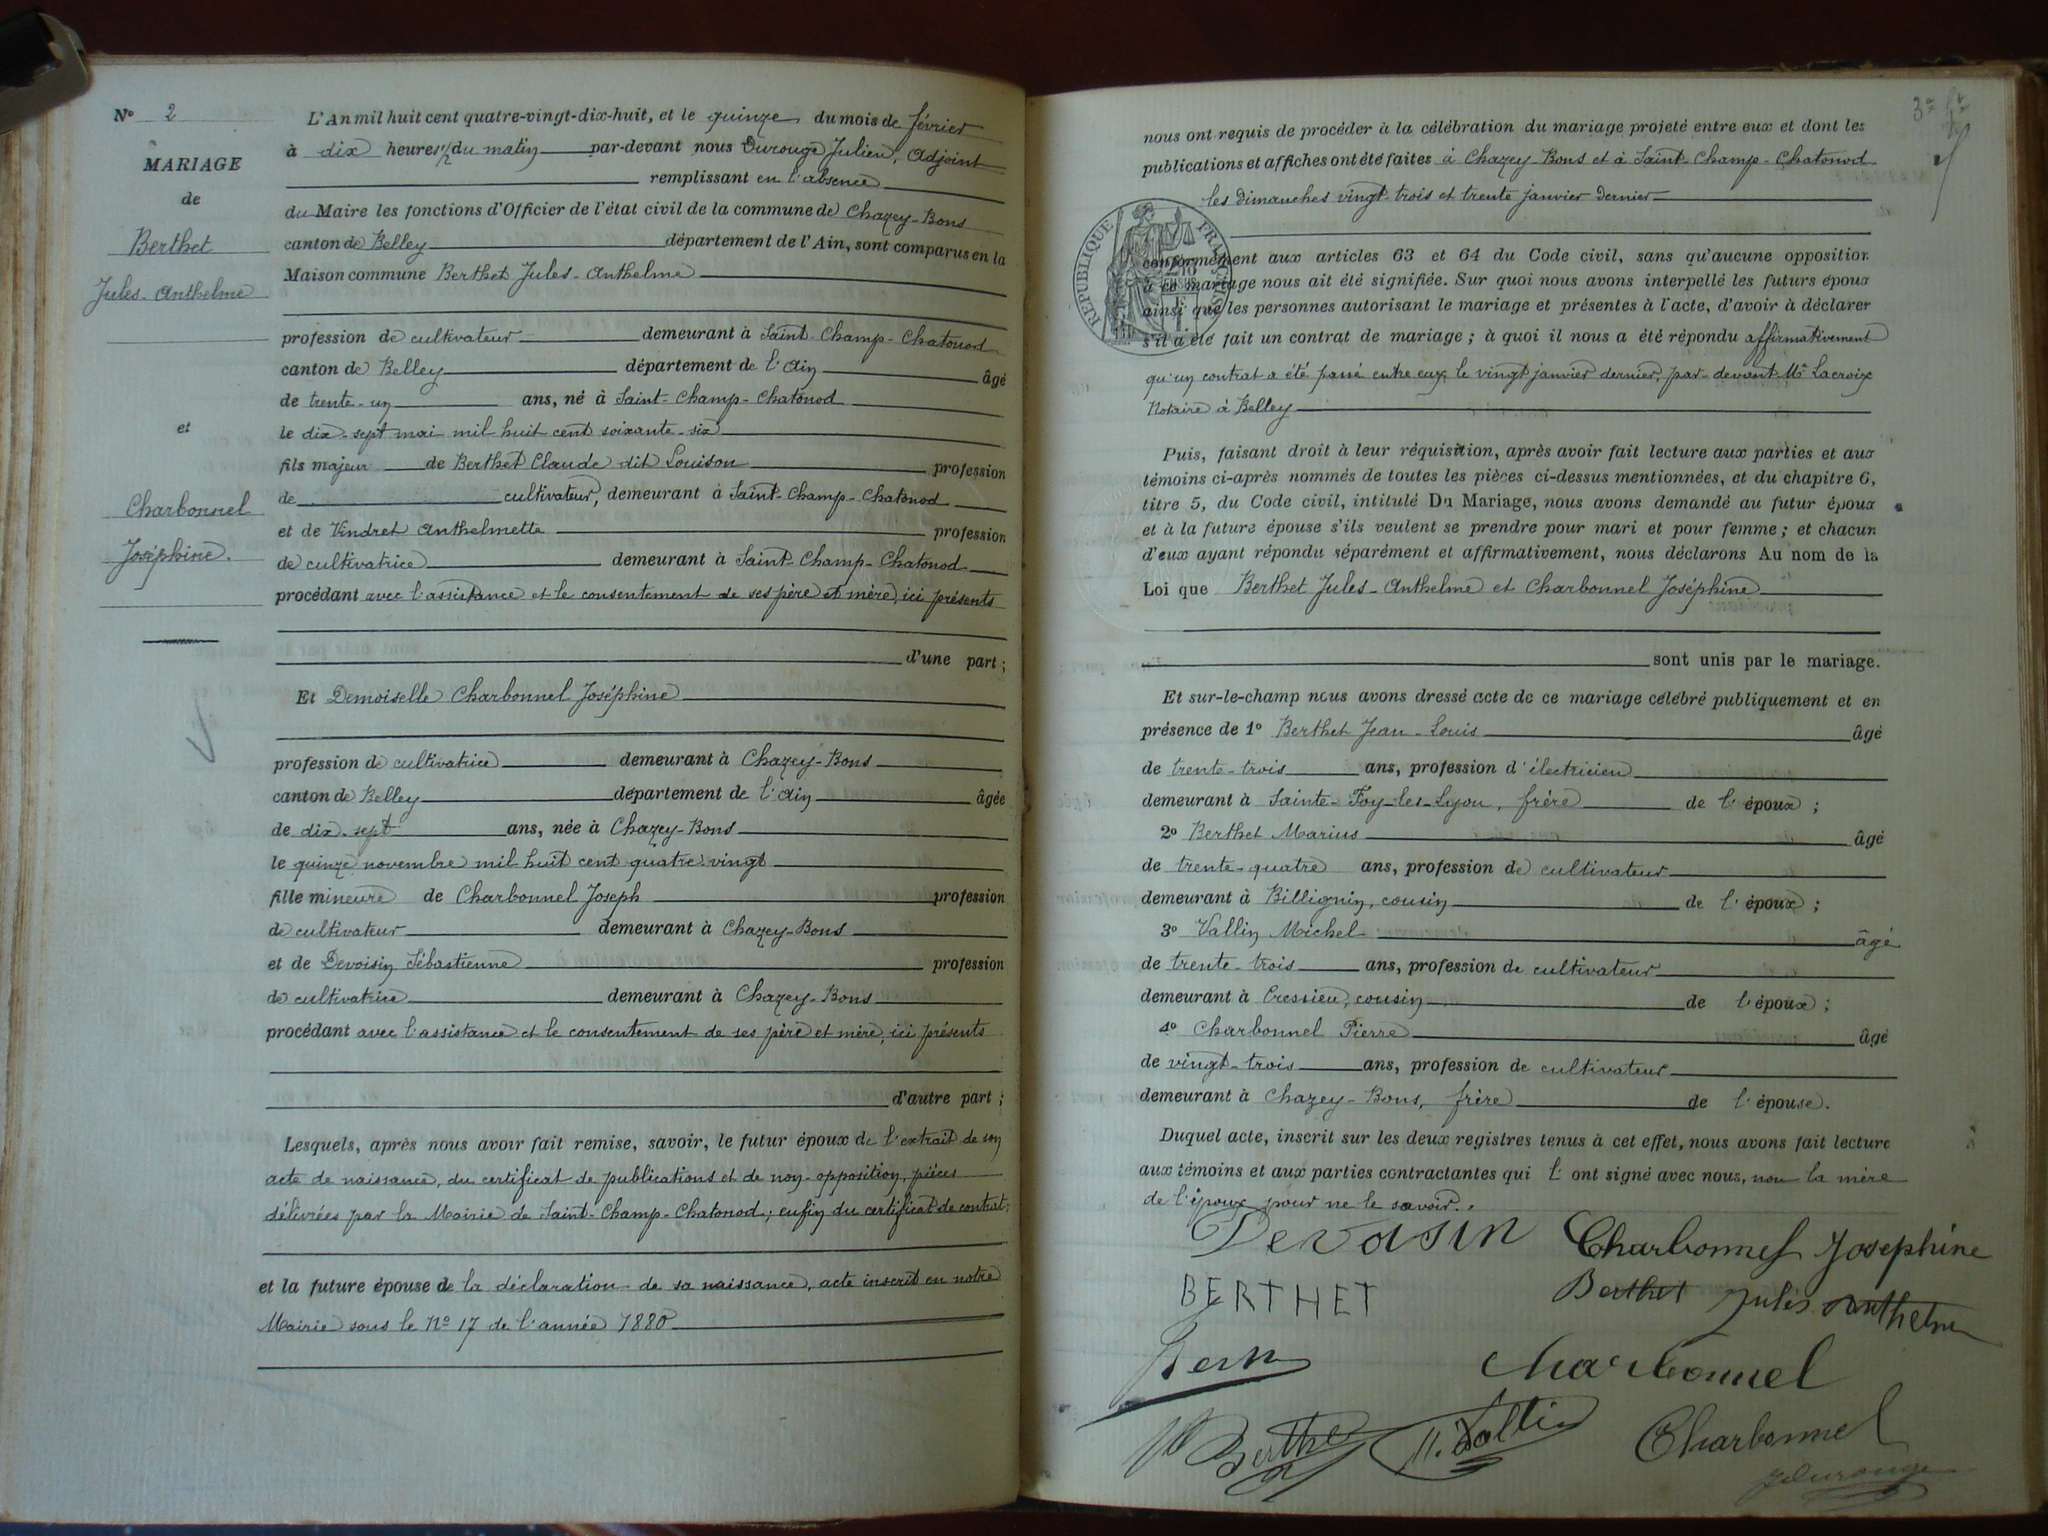 N° 2
MARIAGE
de
Berthet
Jules-Anthelme
et
Charbonnel
Joséphine.
L'An mil huit cent quatre-vingt-dix-huit, et le quinze du mois de février
à dix heures 1/2 du matin par-devant nous Durouge Julien, Adjoint
remplissant en l'absence
du Maire les fonctions d'Officier de l'état civil de la commune de Chazey-Bons
canton de Belley département de l'Ain, sont comparus en la
Maison commune Berthet Jules-Anthelme
profession de cultivateur demeurant à Saint-Champ-Chatonod
canton de Belley département de l'Ain âgé
de trente-un ans, né à Saint-Champ-Chatonod
le dix-sept mai mil huit cent soixante-six
fils majeur de Berthet Claude dit Louison profession
de cultivateur, demeurant à Saint-Champ-Chatonod
et de Vindret Anthelmette profession
de cultivatrice demeurant à Saint-Champ-Chatonod
procédant avec l'assistance et le consentement de ses père et mère, ici présents
d'une part ;
Et Demoiselle Charbonnel Joséphine
profession de cultivatrice demeurant à Chazey-Bons
canton de Belley département de l'Ain âgée
de dix-sept ans, née à Chazey-Bons
le quinze novembre mil huit cent quatre-vingt
fille mineure de Charbonnel Joseph profession
de cultivateur demeurant à Chazey-Bons
et de Devoisin Sébastienne profession
de cultivatrice demeurant à Chazey-Bons
procédant avec l'assistance et le consentement de ses père et mère, ici présents
d'autre part ;
Lesquels, après nous avoir fait remise, savoir, le futur époux de l'extrait de son
acte de naissance, du certificat de publications et de non-opposition, pièces
délivrées par la Mairie de Saint-Champ-Chatonod ; enfin du certificat de contrat ;
et la future épouse de la déclaration de sa naissance, acte inscrit en notre
Mairie sous le N° 17 de l'année 1880
nous ont requis de procéder à la célébration du mariage projeté entre eux et dont les
publications et affiches ont été faites à Chazey-Bons et à Saint-Champ-Chatonod
les dimanches vingt-trois et trente janvier dernier
RÉPUBLIQUE FRANÇAISE
conformément aux articles 63 et 64 du Code civil, sans qu'aucune opposition
à ce mariage nous ait été signifiée. Sur quoi nous avons interpellé les futurs époux
ainsi que les personnes autorisant le mariage et présentes à l'acte, d'avoir à déclarer
s'il a été fait un contrat de mariage ; à quoi il nous a été répondu affirmativement
qu'un contrat a été passé entre eux le vingt janvier dernier, par-devant Me Lacroix
Notaire à Belley
Puis, faisant droit à leur réquisition, après avoir fait lecture aux parties et aux
témoins ci-après nommés de toutes les pièces ci-dessus mentionnées, et du chapitre 6,
titre 5, du Code civil, intitulé Du Mariage, nous avons demandé au futur époux
et à la future épouse s'ils veulent se prendre pour mari et pour femme ; et chacun
d'eux ayant répondu séparément et affirmativement, nous déclarons Au nom de la
Loi que Berthet Jules-Anthelme et Charbonnel Joséphine
sont unis par le mariage.
Et sur-le-champ nous avons dressé acte de ce mariage célébré publiquement et en
présence de 1° Berthet Jean-Louis âgé
de trente-trois ans, profession d'électricien
demeurant à Sainte-Foy-les-Lyon, frère de l'époux ;
2° Berthet Marius âgé
de trente-quatre ans, profession de cultivateur
demeurant à Billignin, cousin de l'époux ;
3° Vallin Michel âgé
de trente-trois ans, profession de cultivateur
demeurant à Cressieu, cousin de l'époux ;
4° Charbonnel Pierre âgé
de vingt-trois ans, profession de cultivateur
demeurant à Chazey-Bons, frère de l'épouse.
Duquel acte, inscrit sur les deux registres tenus à cet effet, nous avons fait lecture
aux témoins et aux parties contractantes qui l'ont signé avec nous, non la mère
de l'époux pour ne le savoir.
Devoisin Charbonnel Josephine
BERTHET Berthet Jules Anthelme
Charbonnel
Berthet M. Vallin Charbonnel
J Durouge